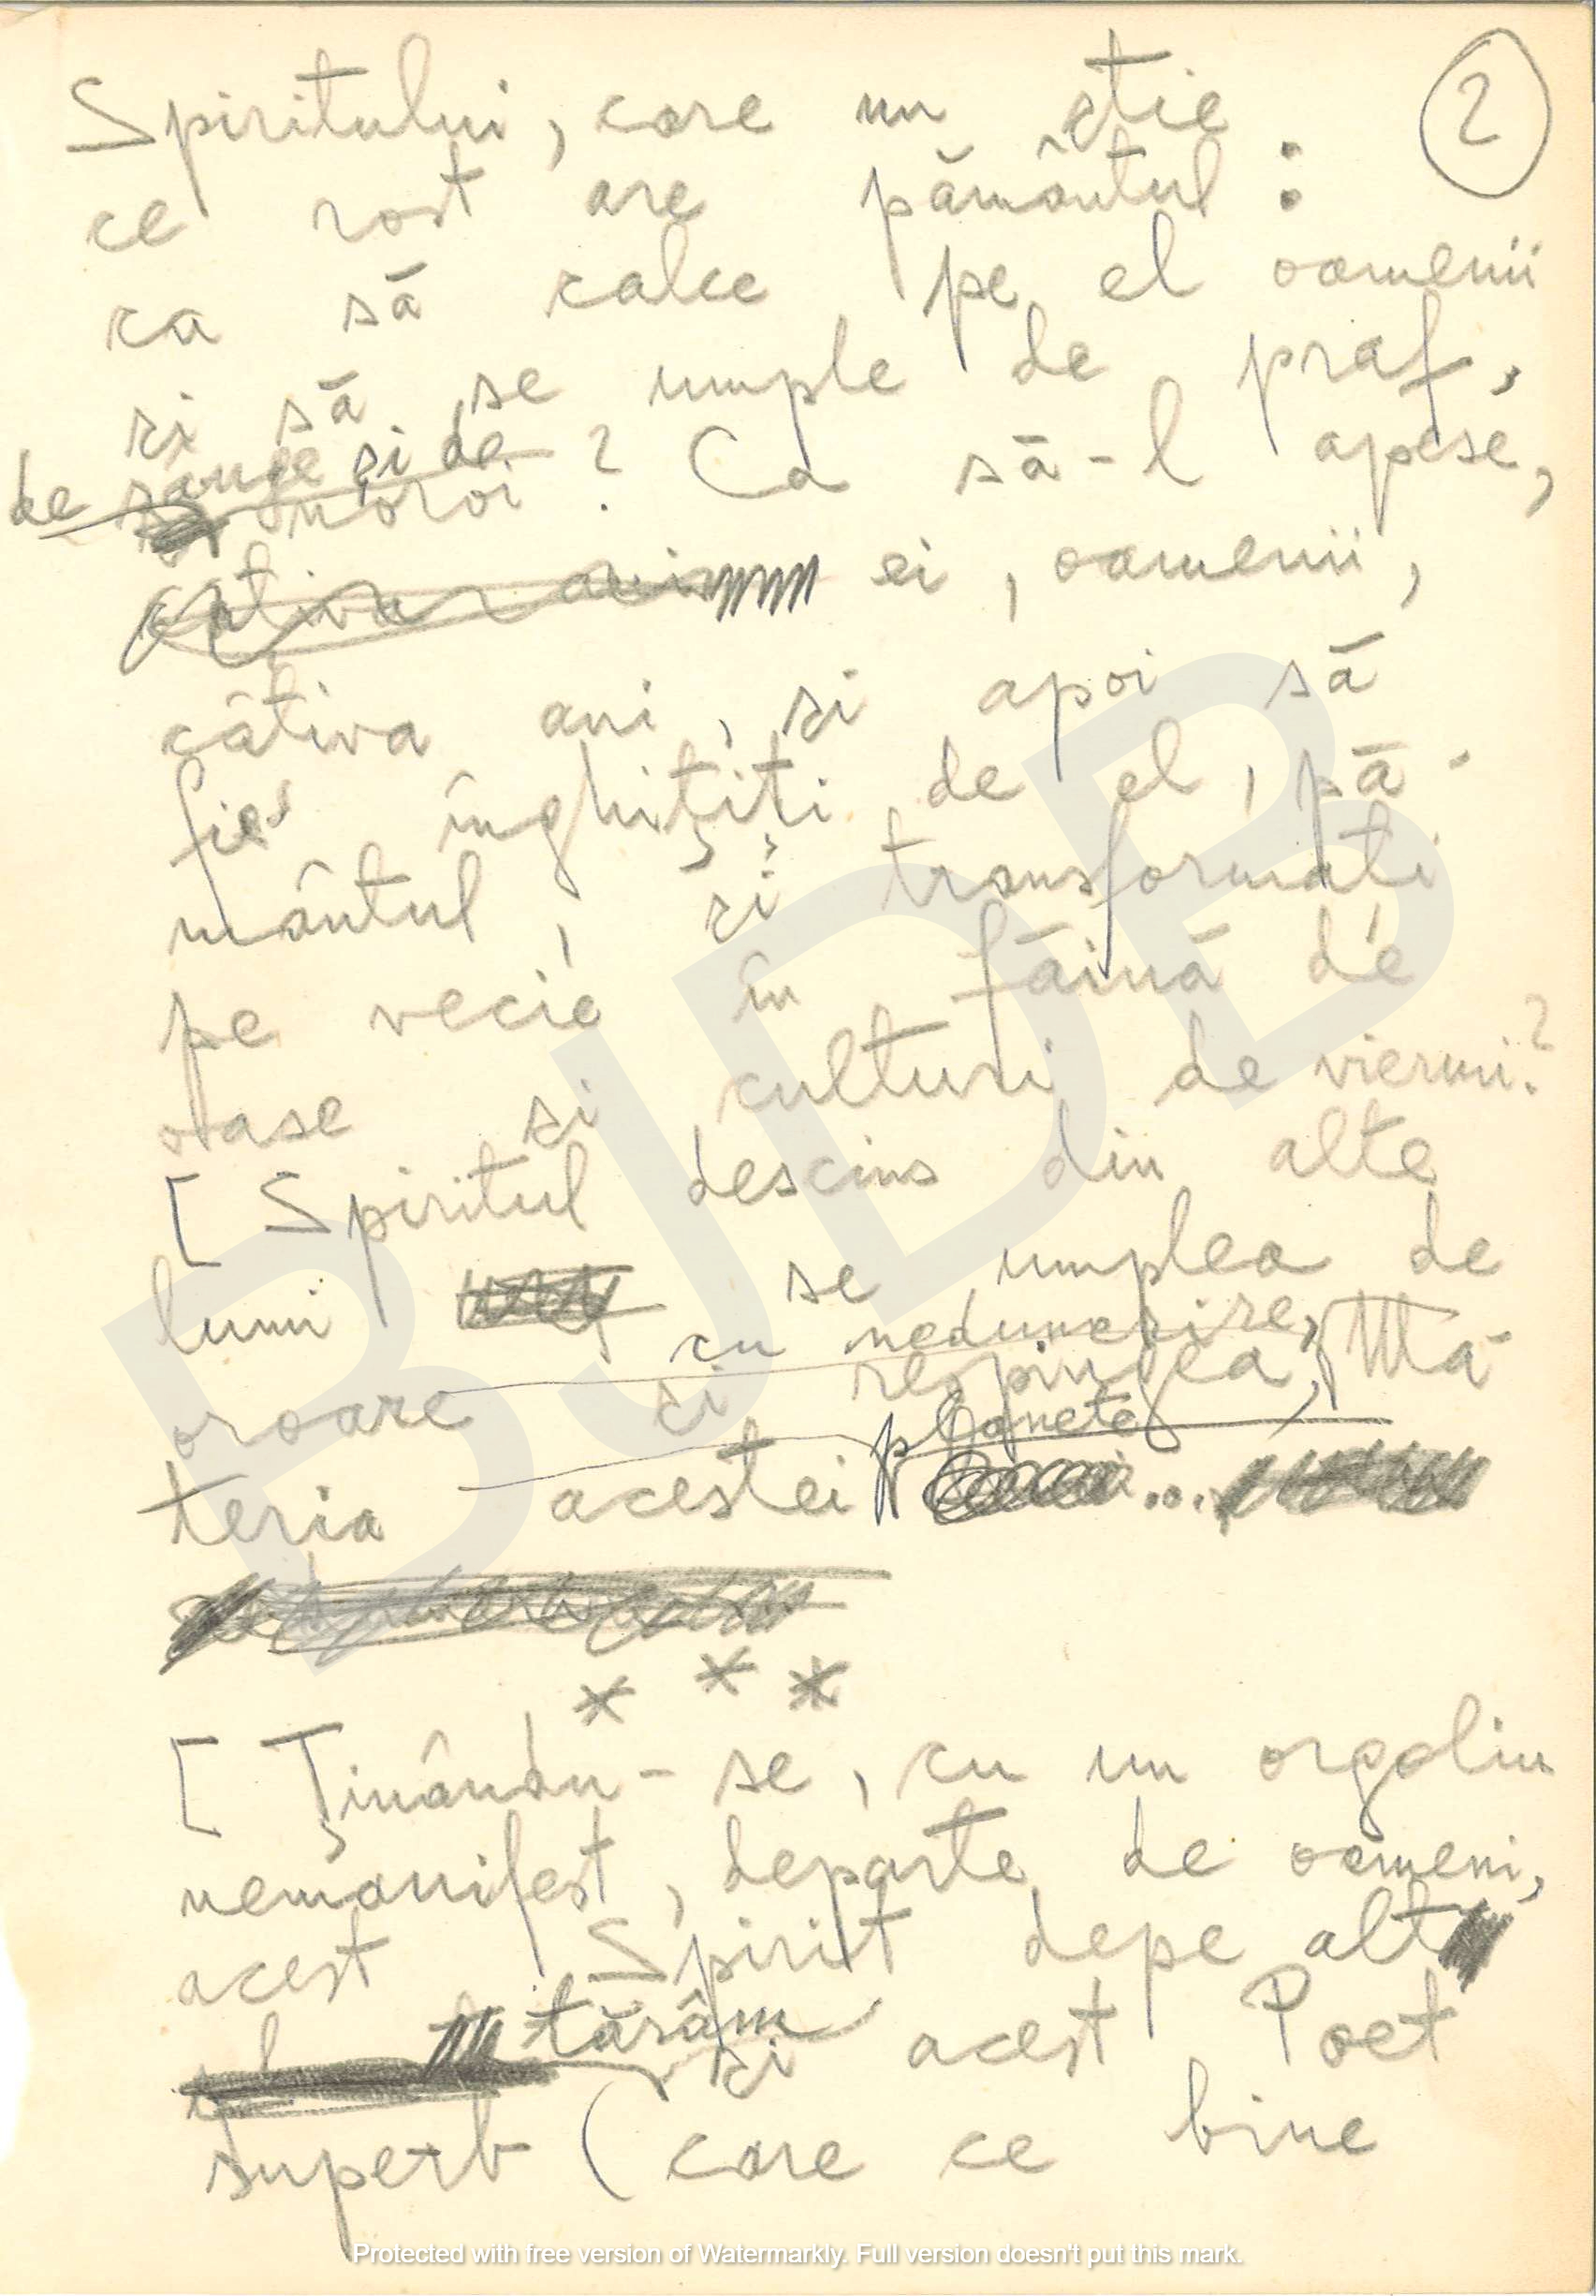 2
Spiritului, care nu știe
ce rost are pământul :
ca să calce pe el oamenii
și să se umple de praf,
de sânge și de
noroi ? Ca să-l apese,
câtiva ani ei, oamenii,
câtiva ani, și apoi să
fie înghițiți de el, pă-
mântul, și transformați
pe vecie în făină de
oase și culturi de viermi ?
[ Spiritul descins din alte
lumi se umplea de
cu nedumerire,
oroare și respingea, Ma-
planete
teria acestei ...
* * *
[ Ținându-se, cu un orgoliu
nemanifest, departe de oameni,
acest Spirit depe alt
tărâm și acest Poet
superb (care ce bine
BJDB
Protected with free version of Watermarkly. Full version doesn't put this mark.